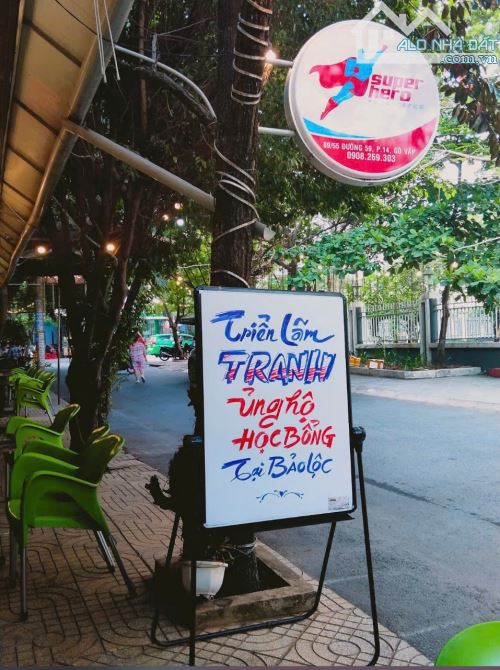 ALO NHÀ ĐẤT
.com.vn
super
hero
89/55 ĐƯỜNG 59, P.14, GÒ VẤP
0908.269.303
Triển Lãm
TRANH
ủng hộ
HỌC BỔNG
Tại BẢO LỘC